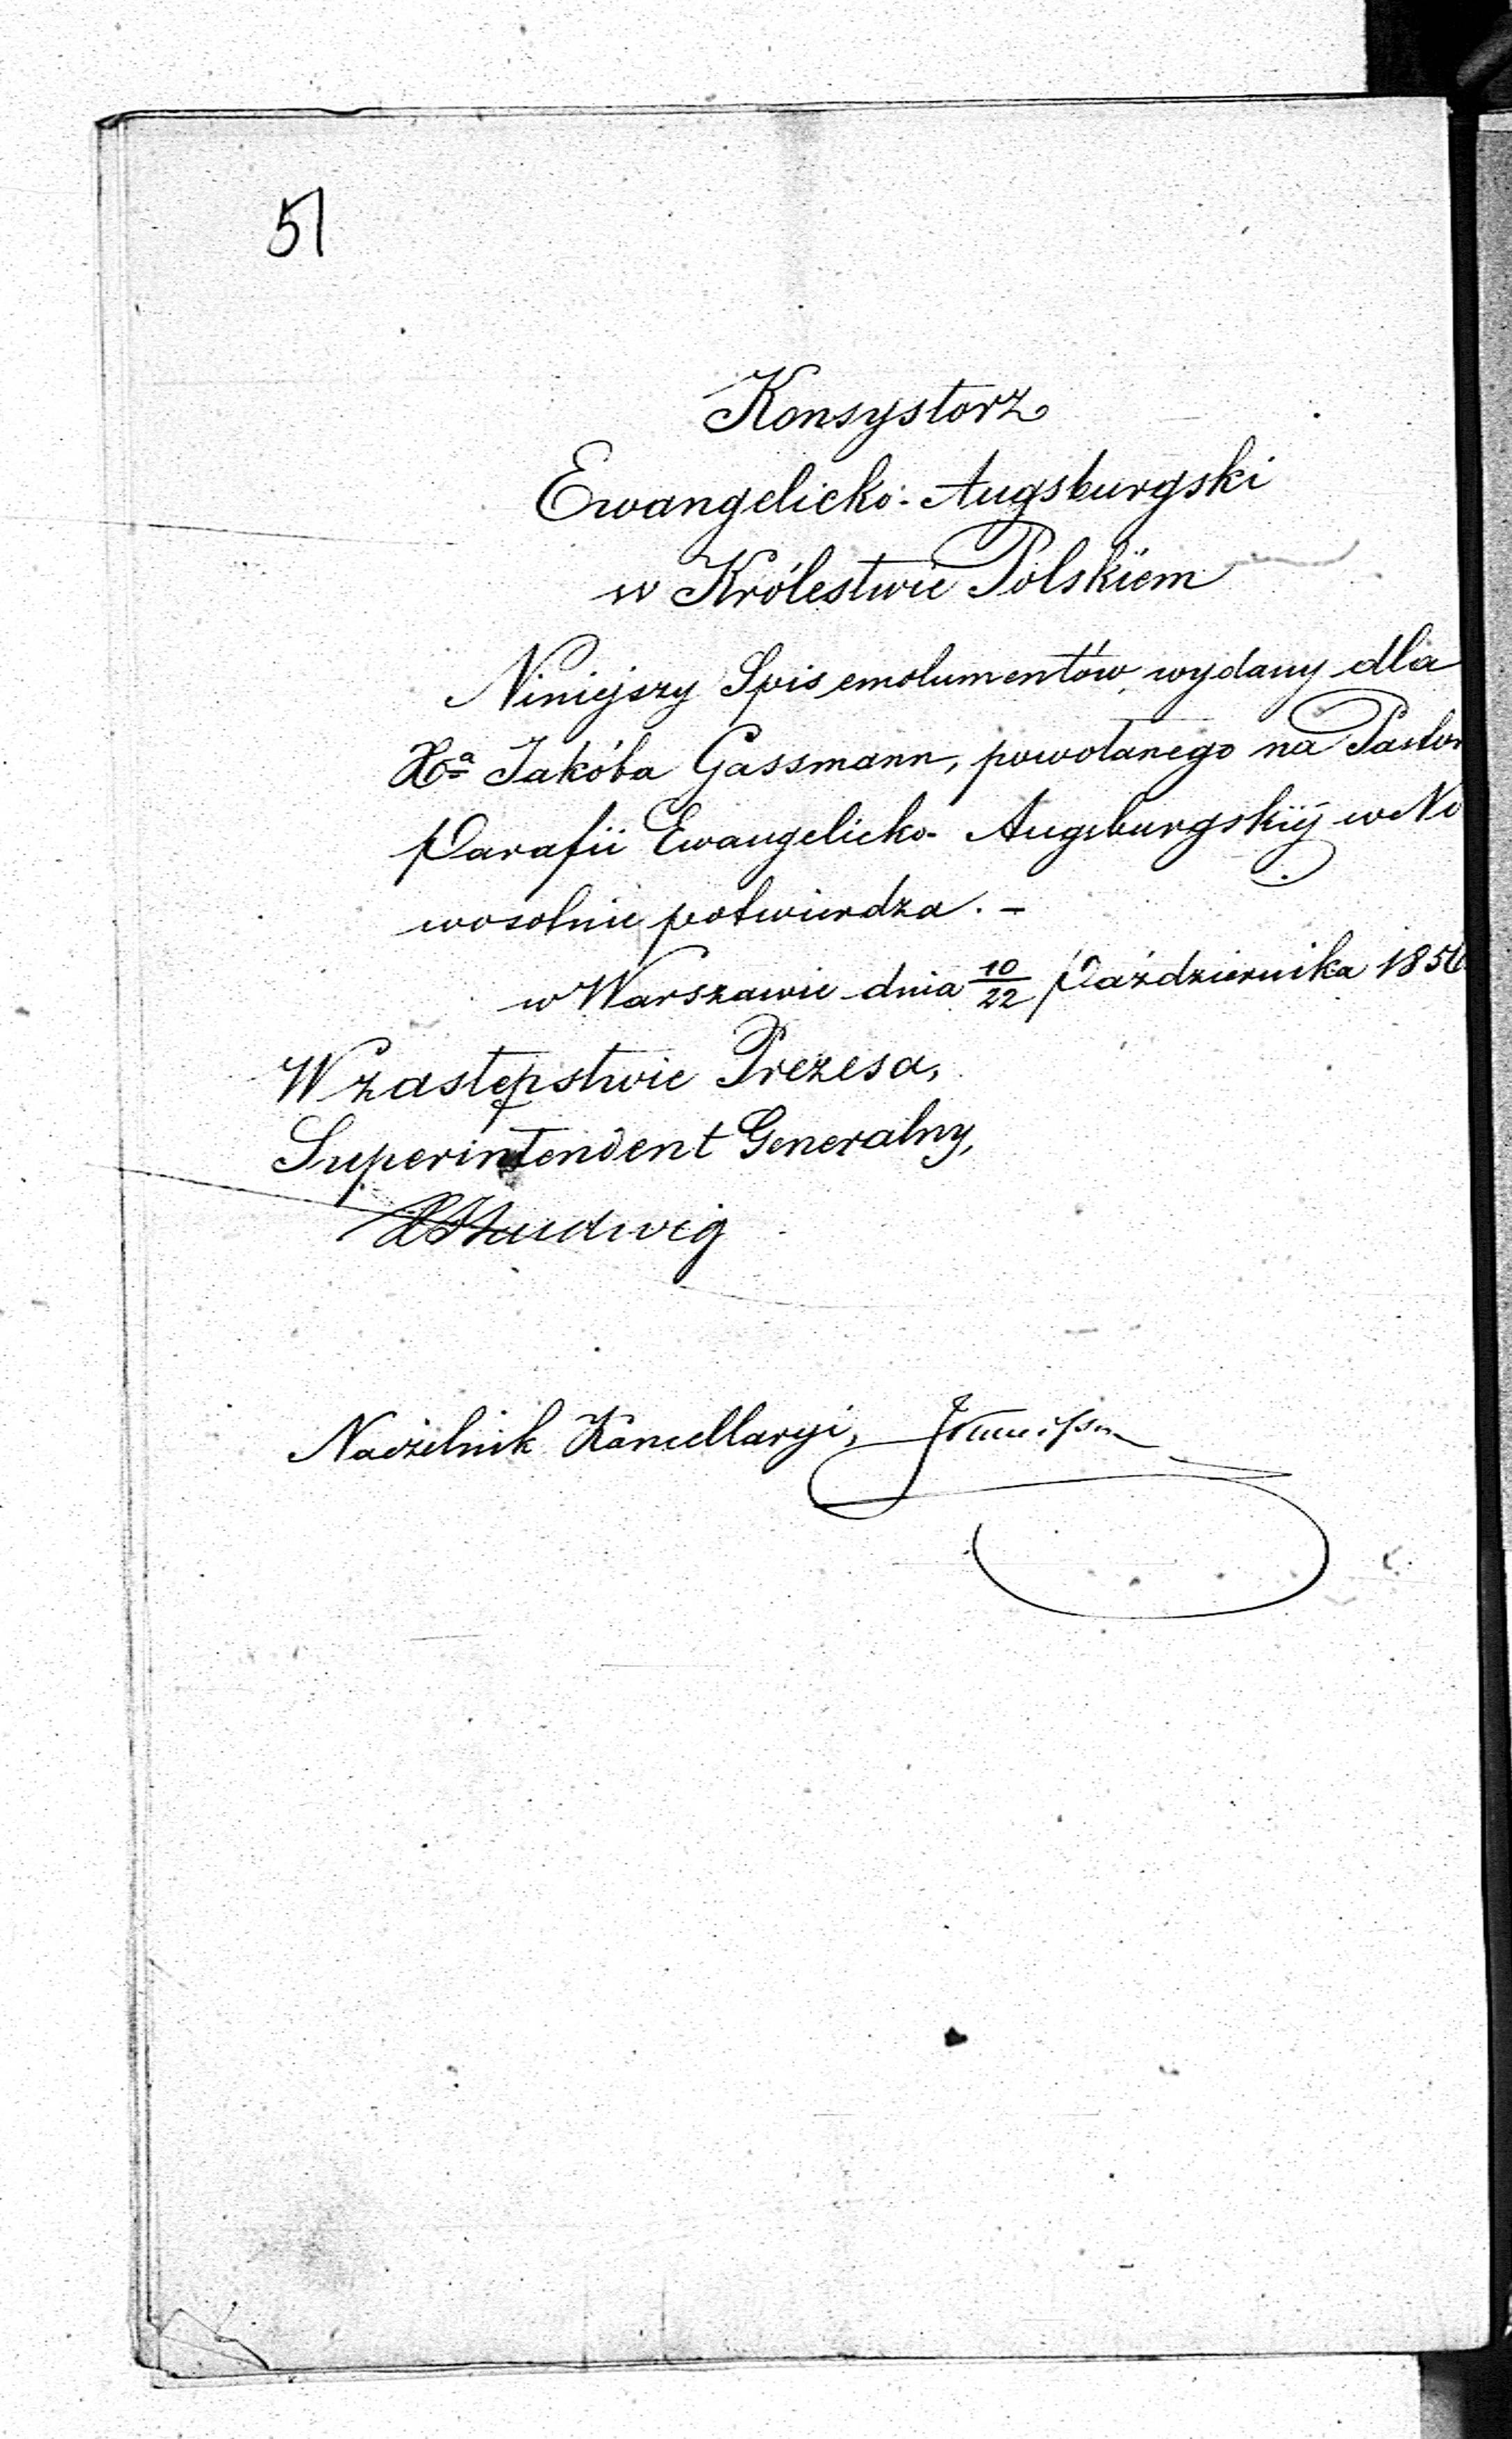 51
Konsystorz
Ewangelicko-Augsburgski
w Królestwie Polskiem
Niniejszy Spis emolumentów, wydany dla
Xa Jakóba Gassmann, powołanego na Pastor
Parafii Ewangelicko-Augsburgskiéj w No
wosolnie potwierdza. -
w Warszawie dnia 10/22 Października 1856
W zastępstwie Prezesa,
Superintendent Generalny,
Ludwig
Naczelnik Kancellaryi,